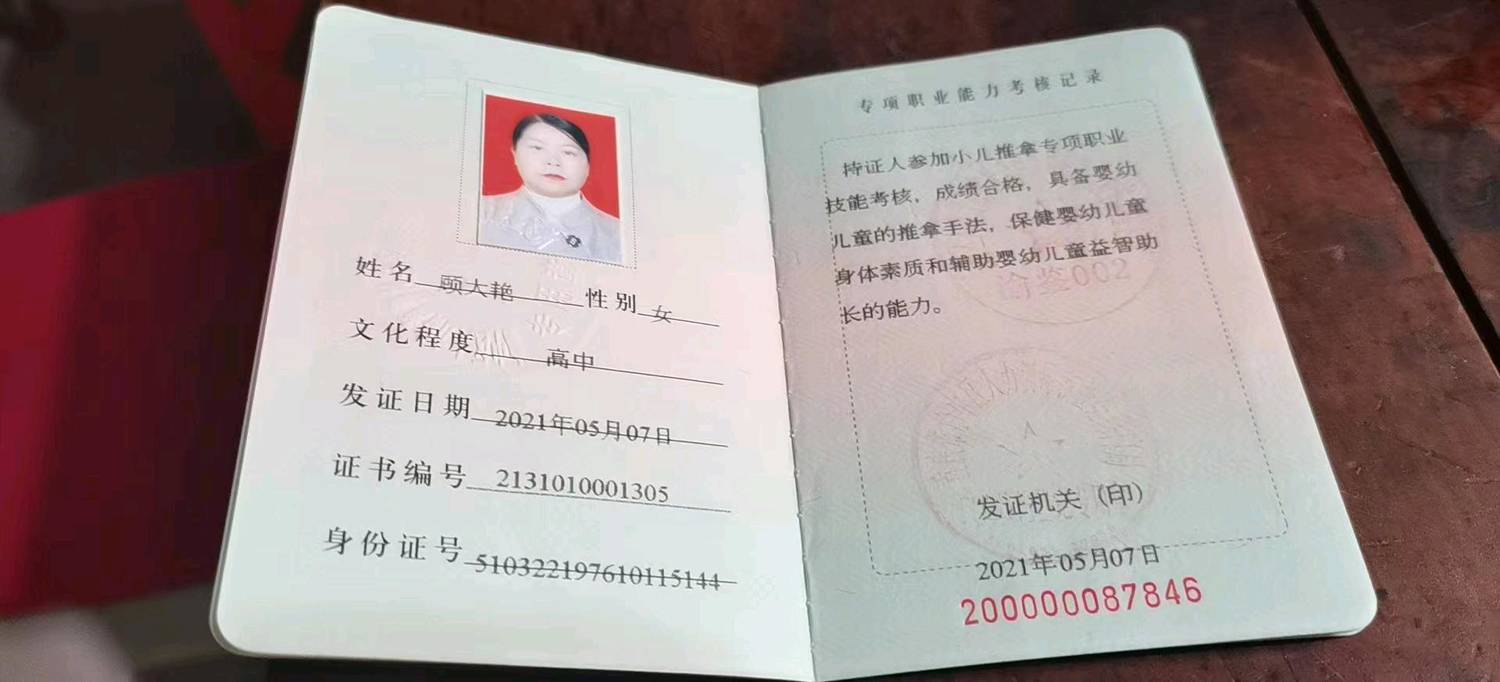 姓名 顾大艳 性别 女
文化程度 高中
发证日期 2021年05月07日
证书编号 2131010001305
身份证号 510322197610115144
专项职业能力考核记录
持证人参加小儿推拿专项职业
技能考核，成绩合格，具备婴幼
儿童的推拿手法，保健婴幼儿童
身体素质和辅助婴幼儿童益智助
长的能力。
渝鉴002
发证机关（印）
2021年05月07日
200000087846